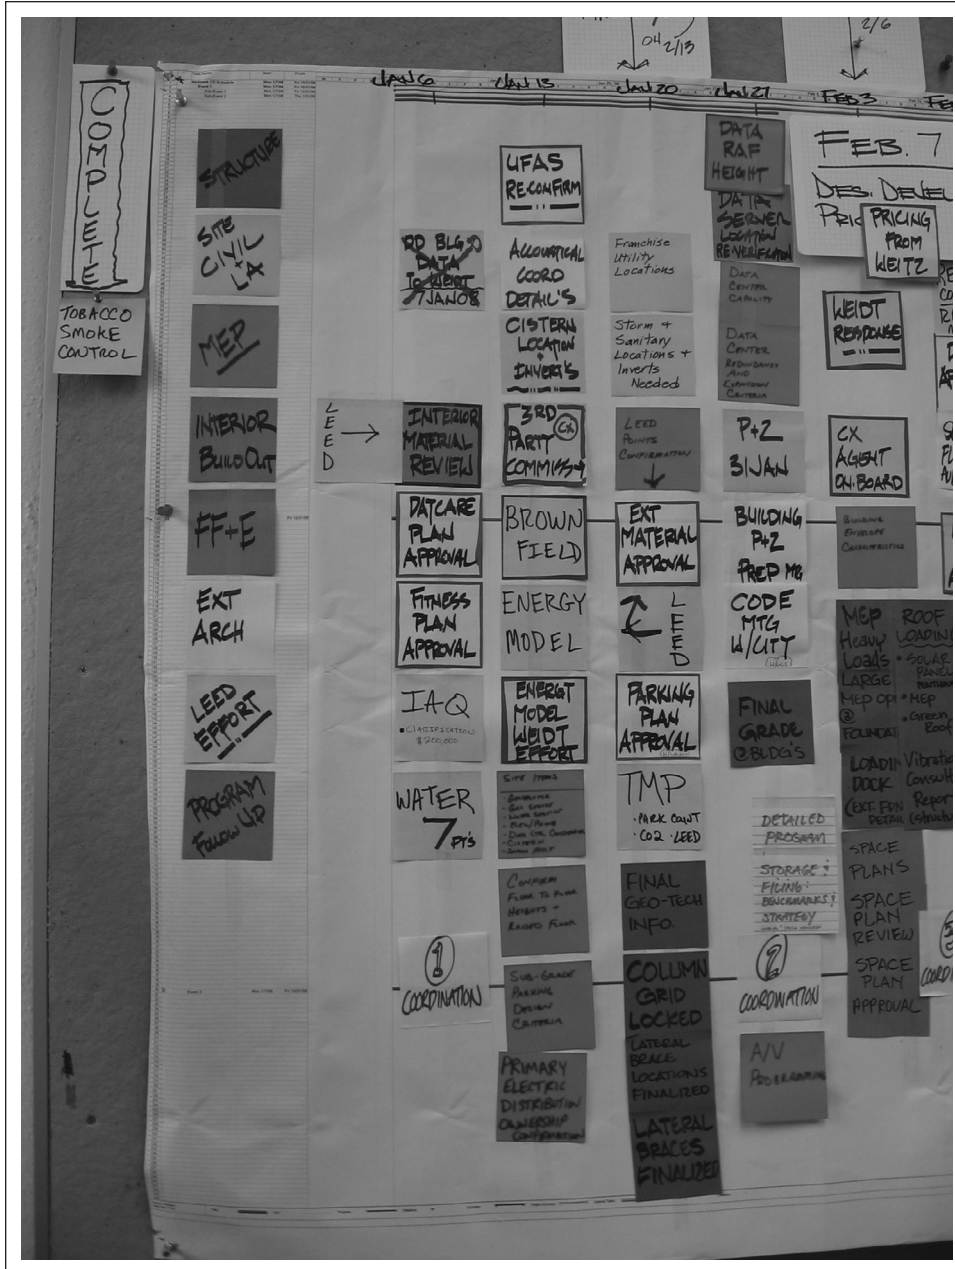 04 2/13
2/6
COMPLETE
TOBACCO
SMOKE
CONTROL
JAN 6
JAN 13
JAN 20
JAN 27
FEB 3
STRUCTURE
SITE
CIVIL
LA
MEP
INTERIOR
BUILD OUT
FF+E
EXT
ARCH
LEED
EFFORT
PROGRAM
FOLLOW UP
LEED
RD BLG
DATA
TO WEIDT
7JAN08
INTERIOR
MATERIAL
REVIEW
DAYCARE
PLAN
APPROVAL
FITNESS
PLAN
APPROVAL
IAQ
• CLASSIFICATION
$200,000
WATER
7 PT'S
1
COORDINATION
UFAS
RECONFIRM
ACCOUSTICAL
COORD
DETAIL'S
CISTERN
LOCATION
+
INVERT'S
3RD
PARTY CX
COMMISS→
BROWN
FIELD
ENERGY
MODEL
ENERGY
MODEL
WEIDT
EFFORT
SITE ITEMS
CONFIRM
FLOOR TO FLOOR
HEIGHTS +
RAISED FLOOR
SUB-GRADE
PARKING
DESIGN
CRITERIA
PRIMARY
ELECTRIC
DISTRIBUTION
OWNERSHIP
CONFIRMATION
Franchise
Utility
Locations
Storm +
Sanitary
Locations +
Inverts
Needed
LEED
POINTS
CONFIRMATION
EXT
MATERIAL
APPROVAL
LEED
PARKING
PLAN
APPROVAL
TMP
• PARK COUNT
• CO2 • LEED
FINAL
GEO-TECH
INFO.
COLUMN
GRID
LOCKED
LATERAL
BRACE
LOCATIONS
FINALIZED
LATERAL
BRACES
FINALIZED
DATA
RAF
HEIGHT
DATA
SERVER
LOCATION
RE-VERIFICATION
DATA
CENTER
CAPACITY
DATA
CENTER
REDUNDANCY
AND
EXPANSION
CRITERIA
P+Z
31JAN
BUILDING
P+Z
PREP MTG
CODE
MTG
W/CITY
FINAL
GRADE
@BLDG'S
DETAILED
PROGRAM
STORAGE :
FILING :
BENCHMARKS :
STRATEGY
2
COORDINATION
A/V
PROGRAMMING
FEB. 7
DES. DEVEL
PRIC
PRICING
FROM
WEITZ
WEIDT
RESPONSE
CX
AGENT
ON BOARD
BUILDING
ENVELOPE
CHARACTERISTICS
MEP
Heavy
Loads
LARGE
MEP OPI
@
FOUNDAT
ROOF
LOADING
• SOLAR
PANEL
• MEP
• Green
Roof
LOADIN
DOCK
(EXT. FDN
DETAIL
Vibratio
Consult
Repor
(structu
SPACE
PLANS
SPACE
PLAN
REVIEW
SPACE
PLAN
APPROVAL
COORDIN